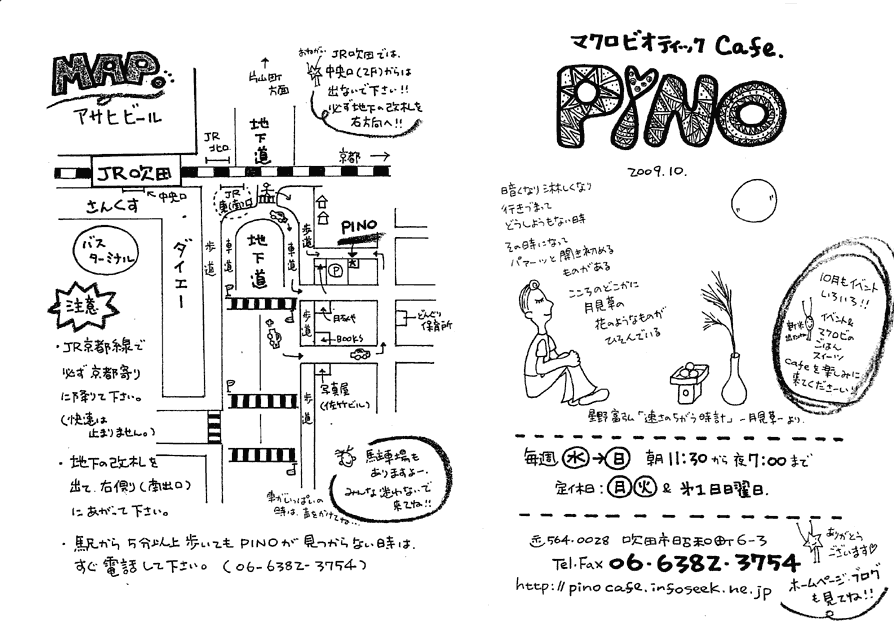 MAP.
アサヒビール
JR吹田
さんくす
中央口
バス
ターミナル
ダイエー
注意
・JR京都線で
必ず京都寄り
に降りて下さい。
(快速は
止まりません。)
・地下の改札を
出て、右側り(南出口)
にあがって下さい。
・駅から5分以上歩いてもPINOが見つからない時は、
すぐ電話して下さい。(06-6382-3754)
片山町
方面
おねがい
JR吹田では、
中央口(2F)からは
出ないで下さい!!
必ず地下の改札を
右方向へ!!
JR
北口
地下道
京都
JR
地下道
歩道
車道
車道
歩道
PINO
P
歩道
BOOKS
どんぐり
保育所
写真屋
(佐竹ビル)
歩道
馬主車場も
ありますよー。
みんな迷わないで
来てね!!
車がいっぱいの
時は、声をかけてね…
マクロビオティック Cafe.
PiNO
2009.10.
暗くなり淋しくなり
行きづまって
どうしようもない時
その時になって
パァーッと開き初める
ものがある
こころのどこかに
月見草の
花のようなものが
ひそんでいる
星野富弘「速さのちがう時計」-月見草-より.
10月もイベント
いろいろ!!
イベント&
マクロビの
ごはん
スイーツ
cafeを楽しみに
来てくださーい!!
毎週 水→日 朝11:30から夜7:00まで
定休日:月火 & 第1日曜日.
〒564-0028 吹田市昭和町6-3
Tel.Fax 06-6382-3754
http://pinocafe.infoseek.ne.jp
ありがとう
ございます♡
ホームページ・ブログ
も見てね!!